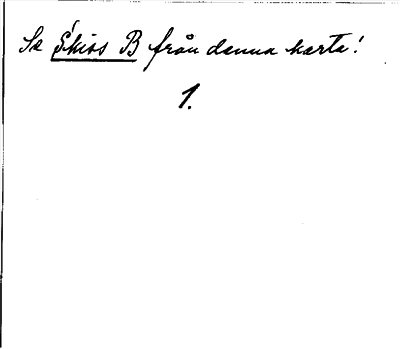 Se Skiss B från denna karta!
1.